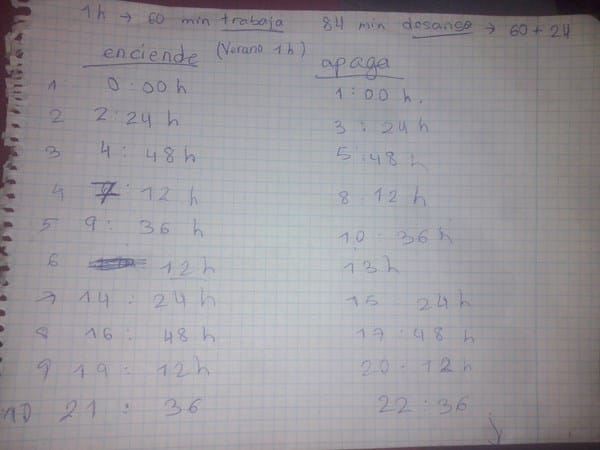 1h → 60 min trabaja 84 min descanso → 60 + 24
enciende (Verano 1h) apaga
1 0:00 h 1:00 h.
2 2:24 h 3:24h
3 4:48h 5:48h
4 7:12 h 8:12 h
5 9:36 h 10:36h
6 12h 13h
7 14:24h 15 24h
8 16:48h 17:48h
9 19:12h 20:12h
10 21:36 22:36